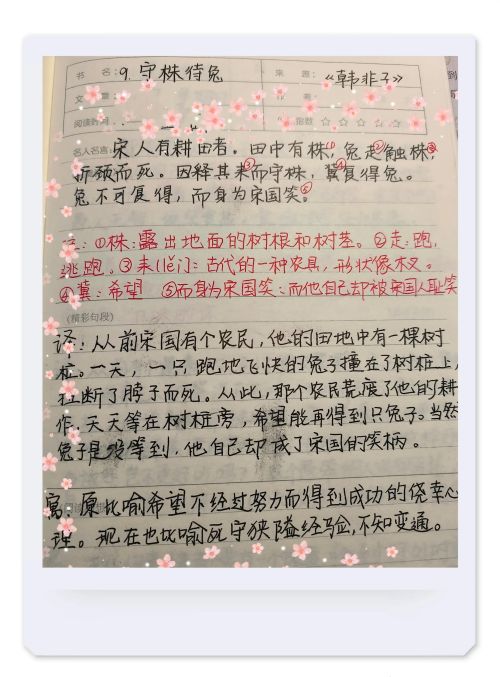 书 名：9.守株待兔 来 源：《韩非子》
文 章：
阅读时间 指数 ☆ ☆ ☆ ☆ ☆
名人名言：宋人有耕田者。田中有株①，兔走②触株，
折颈而死。因释其耒③而守株，冀④复得兔。
兔不可复得，而身为宋国笑⑤。
注：①株：露出地面的树根和树茎。②走：跑，
逃跑。③耒(lěi)：古代的一种农具，形状像木叉。
④冀：希望 ⑤而身为宋国笑：而他自己却被宋国人耻笑
(精彩句段)
译：从前宋国有个农民，他的田地中有一棵树
桩。一天，一只跑地飞快的兔子撞在了树桩上，
扭断了脖子而死。从此，那个农民荒废了他的耕
作，天天等在树桩旁，希望能再得到只兔子。当然
兔子是没等到，他自己却成了宋国的笑柄。
寓：原比喻希望不经过努力而得到成功的侥幸心
理。现在也比喻死守狭隘经验，不知变通。